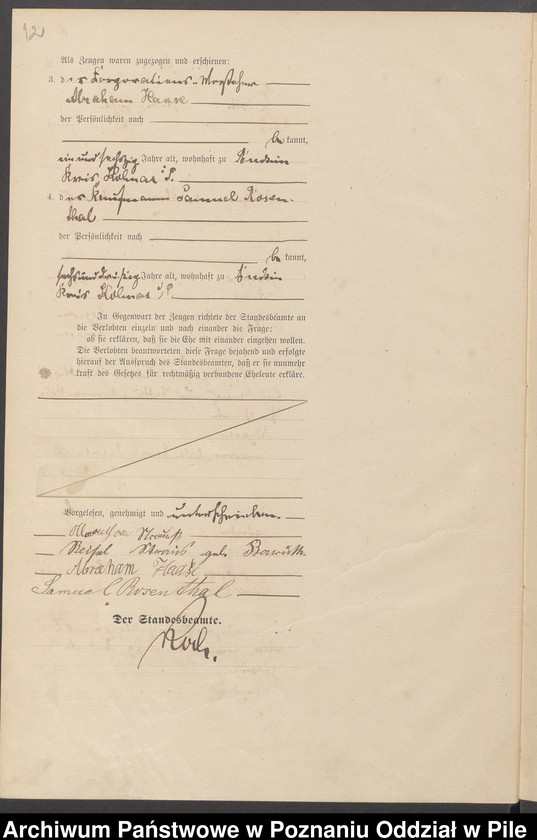 12
Als Zeugen waren zugezogen und erschienen:
3. der Corporations-Vorsteher
Abraham Haase
der Persönlichkeit nach
bekannt,
einundsechszig Jahre alt, wohnhaft zu
Kreis Kolmar i/P.
4. der Kaufmann Samuel Rosen-
thal
der Persönlichkeit nach
bekannt,
sechsunddreißig Jahre alt, wohnhaft zu
Kreis Kolmar i/P.
In Gegenwart der Zeugen richtete der Standesbeamte an
die Verlobten einzeln und nach einander die Frage:
ob sie erklären, daß sie die Ehe mit einander eingehen wollen.
Die Verlobten beantworteten diese Frage bejahend und erfolgte
hierauf der Ausspruch des Standesbeamten, daß er sie nunmehr
kraft des Gesetzes für rechtmäßig verbundene Eheleute erkläre.
Vorgelesen, genehmigt und unterschrieben.
Strauß
geb.
Abraham Haase
Samuel Rosenthal
Der Standesbeamte.
Koch.
Archiwum Państwowe w Poznaniu Oddział w Pile